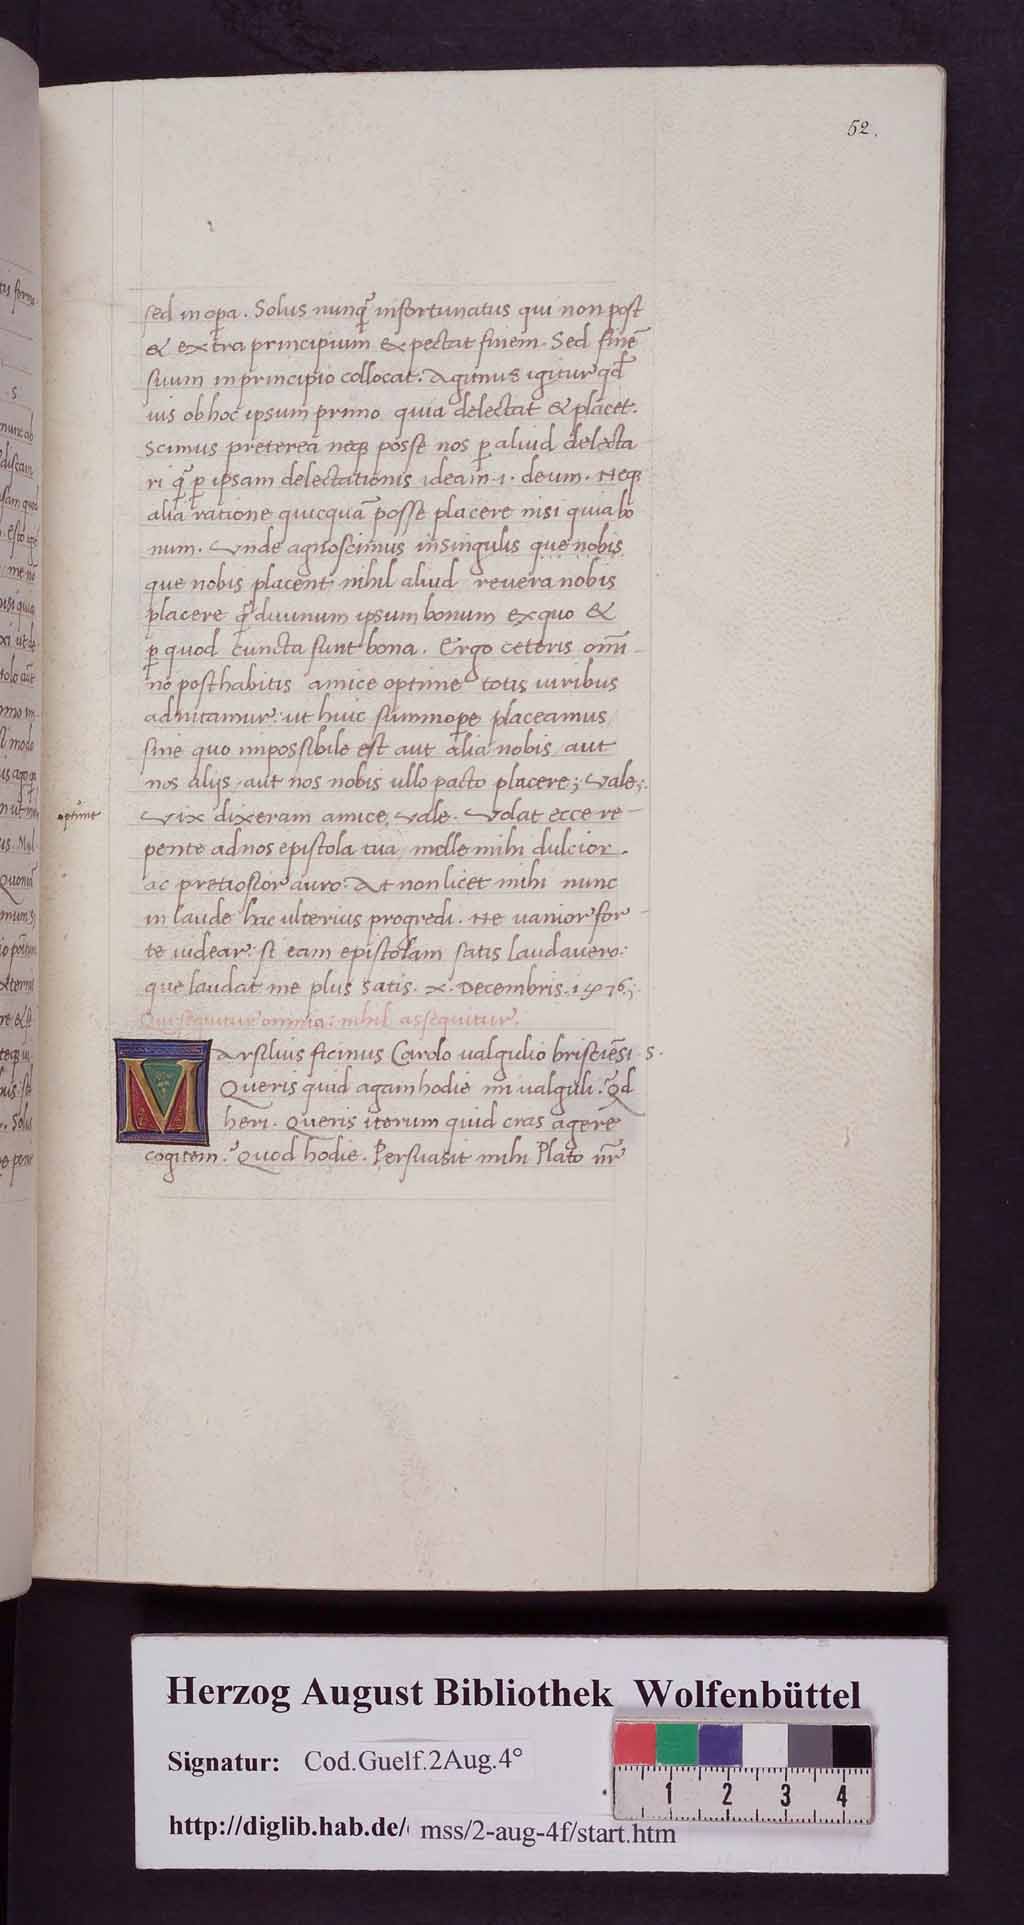 52.
sed in op̲a. Solus nunq̃ infortunatus qui non post
& extra principium expectat finem. Sed finẽ
suum in principio collocat. Agimus igitur qđ
uis ob hoc ipsum primo quia delectat & placet.
Scimus preterea neq; posse nos p̲ aliud delecta
ri q̃ p̲ ipsam delectationis ideam .i. deum. Neq;
alia ratione quicquã posse placere nisi quia bo
num. Unde agnoscimus in singulis que nobis
que nobis placent nihil aliud reuera nobis
placere q̃ diuinum ipsum bonum ex quo &
p̲ quod cuncta sunt bona. Ergo ceteris om̃i-
no posthabitis amice optime totis uiribus
adnitamur: ut huic summop̲e placeamus
sine quo impossibile est aut alia nobis aut
nos alijs, aut nos nobis ullo pacto placere; Vale;.
optime
Vix dixeram amice, vale. Volat ecce re-
pente ad nos epistola tua melle mihi dulcior.
ac pretiosior auro: At non licet mihi nunc
in laude hac ulterius progredi. Ne uanior for-
te uidear: si eam epistolam satis laudauero:
que laudat me plus satis. X. Decembris. 1476;.
Qui sequitur omnia: nihil assequitur.
Marsilius ficinus Carolo ualgulio brisciẽsi .s.
Queris quid agam hodie mi ualguli? Qđ
heri. Queris iterum quid cras agere
cogitem? Quod hodie. Persuasit mihi Plato nr̃
Herzog August Bibliothek Wolfenbüttel
Signatur: Cod.Guelf.2Aug.4°
http://diglib.hab.de/ mss/2-aug-4f/start.htm
1 2 3 4